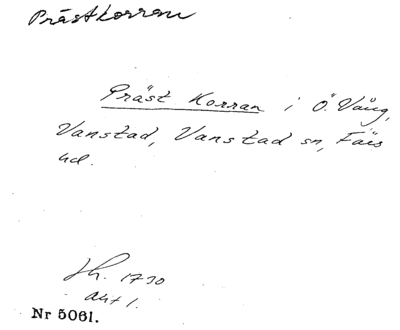 Prästkorran
Präst Korran i Ö. Vång,
Vanstad, Vanstad sn, Färs
hd.
Lh. 1730
akt 1.
Nr 5061.